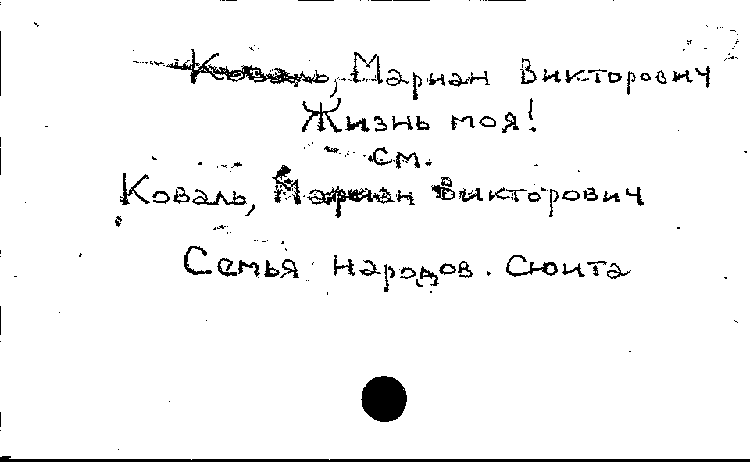 Коваль, Мариан Викторович
Жизнь моя!
см.
Коваль, Мариан Викторович
Семья народов. Сюита